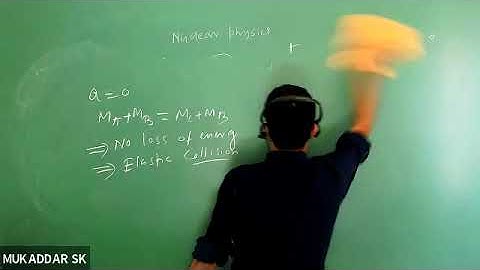 Nuclear physics
Q = 0
M_A + M_B = M_C + M_D
⇒ No loss of energ
⇒ Elastic Collision
MUKADDAR SK